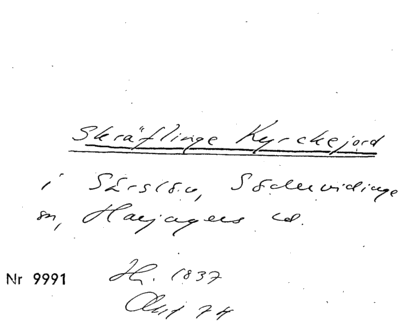 Skräflinge Kyrckejord
i Särslöv, Södervidinge
sn, Harjagers hd.
Nr 9991
H. 1837
Akt 74